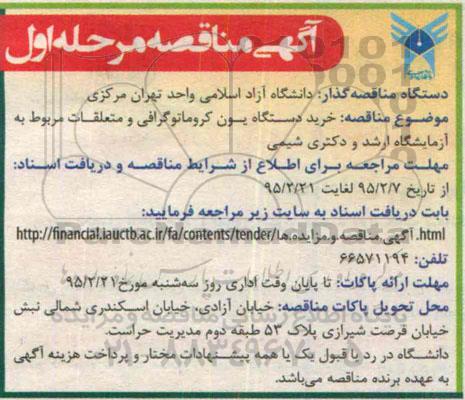 آگهی مناقصه مرحله اول
دستگاه مناقصه‌گذار: دانشگاه آزاد اسلامی واحد تهران مرکزی
موضوع مناقصه: خرید دستگاه یـون کروماتوگرافی و متعلقـات مربوط به
آزمایشگاه ارشد و دکتری شیمی
مهلـت مراجعـه بـرای اطـلاع از شـرایط مناقصـه و دریافـت اسـناد:
از تاریخ ۹۵/۲/۷ لغایت ۹۵/۲/۲۱
بابت دریافت اسناد به سایت زیر مراجعه فرمایید:
http://financial.iauctb.ac.ir/fa/contents/tender/آگهی.مناقصه.و.مزایده.ها.html
تلفن: ۶۶۵۷۱۱۹۴
مهلت ارائه پاکات: تا پایان وقت اداری روز سه‌شنبه مورخ ۹۵/۲/۲۱
محل تحویل پاکات مناقصه: خیابان آزادی، خیابان اسـکندری شمالی نبش
خیابان فرصت شیرازی پلاک ۵۳ طبقه دوم مدیریت حراست.
دانشـگاه در رد یا قبول یک یا همه پیشـنهادات مختار و پرداخت هزینه آگهی
به عهده برنده مناقصه می‌باشد.
۰۲۱-۸۸۳۴۹۶۷۰